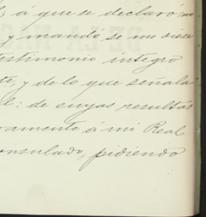 á que se declaró
y mandando se me diese
testimonio íntegro
y de lo que señala
de cuyas resultas
á mi Real
Consulado, pidiendo